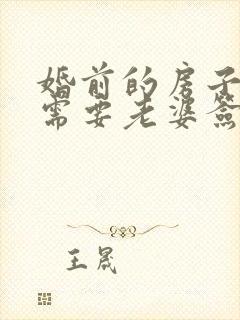 婚前的房子
需要老婆簽
王晟